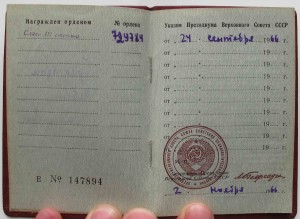 Награжден орденом
№ ордена
Слава III степени
729784
Е № 147894
Указом Президиума Верховного Совета СССР
от „ 24 сентября 1966
от 19
от 19
от 19
от 19
от 19
от 19
от 19
М. П.
„ 2 „ ноября 1966